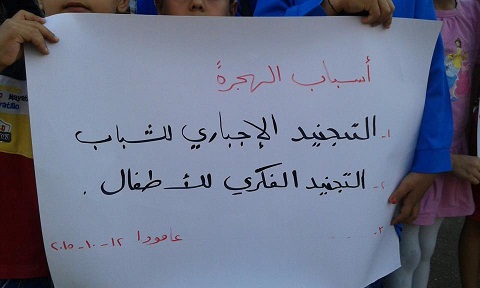 أسباب الهجرة
١- التجنيد الإجباري للشباب
٢- التجنيد الفكري للأطفال .
٣.
عامودا ١٢-١٠-٢٠١٥